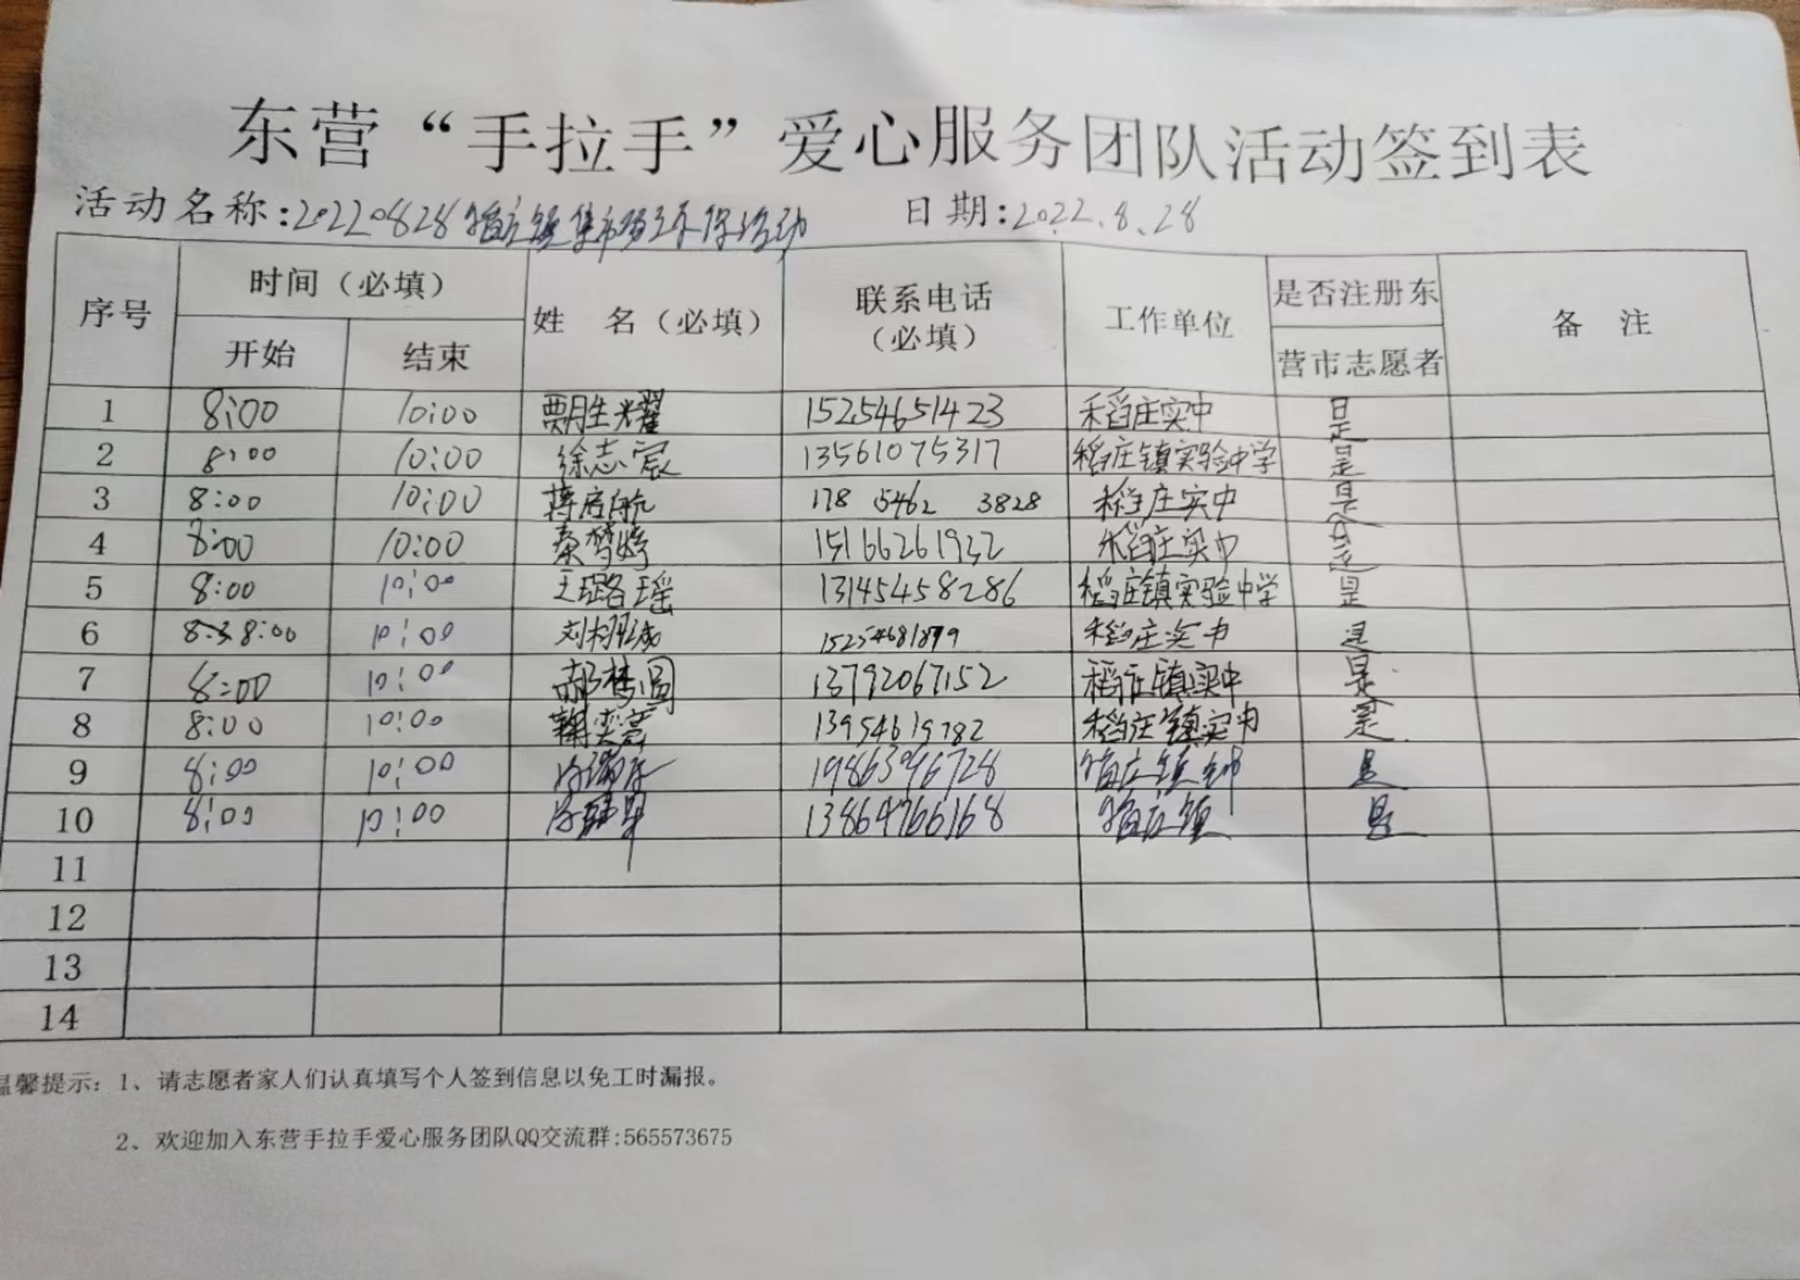 东营“手拉手”爱心服务团队活动签到表
活动名称:20220828稻庄镇集市 环保活动 日期:2022.8.28
序号 时间（必填） 开始 结束 姓 名（必填） 联系电话（必填） 工作单位 是否注册东营市志愿者 备 注
1 8:00 10:00 生耀 15254651423 稻庄实中 是
2 8:00 10:00 徐志宸 13561075317 稻庄镇实验中学 是
3 8:00 10:00 蒋启航 178 5462 3828 稻庄实中 是
4 8:00 10:00 秦梦婷 15166261932 稻庄实中 否
5 8:00 10:00 王璐瑶 13145458286 稻庄镇实验中学 是
6 8:00 10:00 刘 15254681879 稻庄实中 是
7 8:00 10:00 郝梦圆 13792067152 稻庄镇实中 是
8 8:00 10:00 奕 13954619782 稻庄镇实中 是
9 8:00 10:00 19863096728 稻庄镇 是
10 8:00 10:00 13864766168 稻庄镇 是
11
12
13
14
温馨提示：1、请志愿者家人们认真填写个人签到信息以免工时漏报。
2、欢迎加入东营手拉手爱心服务团队QQ交流群:565573675